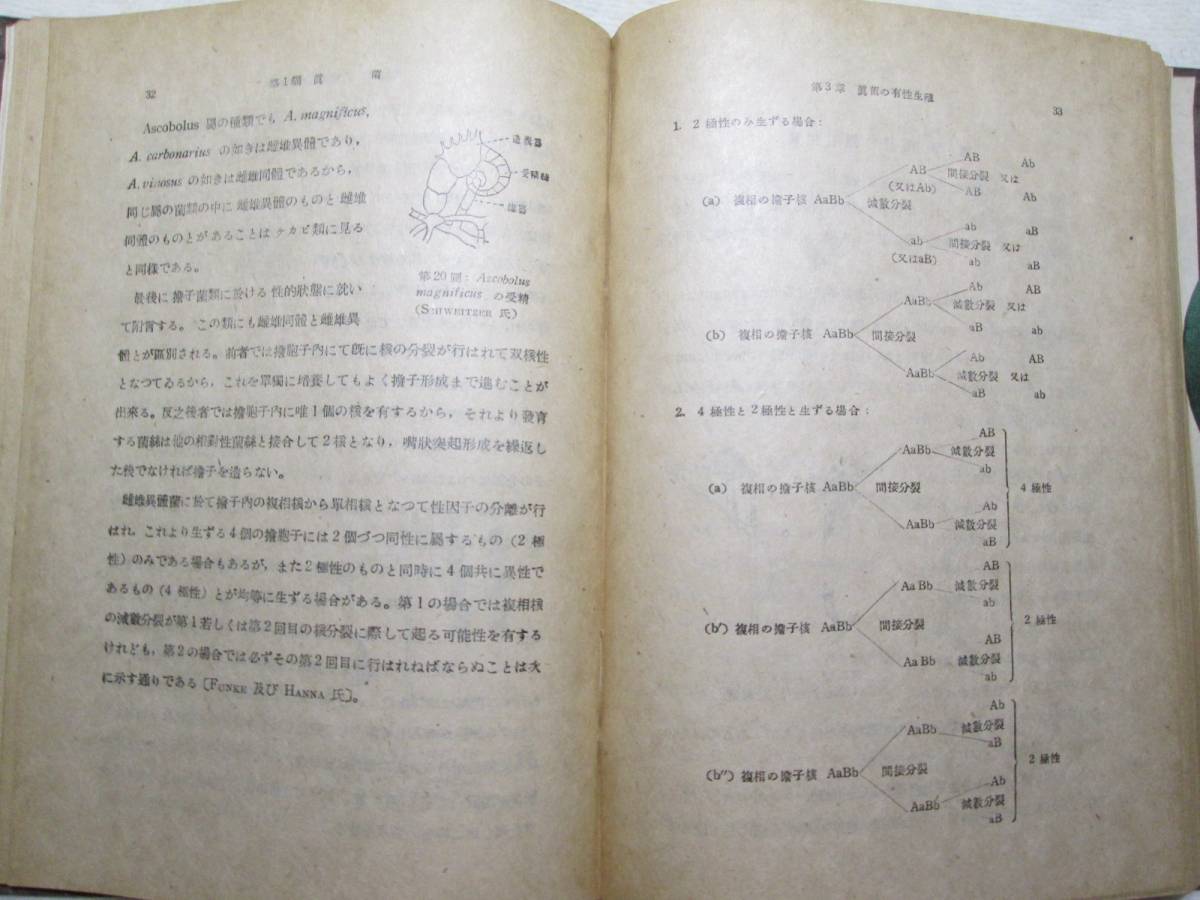 32
第1編 眞 菌
Ascobolus 屬の種類でも A. magnificus,
A. carbonarius の如きは雌雄異體であり,
A. vinosus の如きは雌雄同體であるから,
同じ屬の菌類の中に雌雄異體のものと雌雄
同體のものとがあることはケカビ類に見る
と同樣である。
造嚢器
受精糸
雄器
第20圖: Ascobolus
magnificus の受精
(SCHWEITZER 氏)
最後に擔子菌類に於ける性的狀態に就い
て附言する。この類にも雌雄同體と雌雄異
體とが區別される。前者では擔胞子內にて旣に核の分裂が行はれて双核性
となつてゐるから, これを單獨に培養してもよく擔子形成まで進むことが
出來る。反之後者では擔胞子內に唯1個の核を有するから, それより發育
する菌絲は他の相對性菌絲と接合して2核となり, 嘴狀突起形成を繰返し
た後でなければ擔子を造らない。
雌雄異體菌に於て擔子內の複相核から單相核となつて性因子の分離が行
はれ, これより生ずる4個の擔胞子には2個づつ同性に屬するもの (2 極
性) のみである場合もあるが, また2極性のものと同時に4個共に異性で
あるもの (4 極性) とが均等に生ずる場合がある。第1の場合では複相核
の減數分裂が第1若しくは第2回目の核分裂に際して起る可能性を有する
けれども, 第2の場合では必ずその第2回目に行はれねばならぬことは次
に示す通りである〔FUNKE 及び HANNA 氏〕。
第3章 眞菌の有性生殖
33
1. 2極性のみ生ずる場合:
AB Ab
AB 間接分裂 又は
(又はAb) AB Ab
(a) 複相の擔子核 AaBb 減數分裂
ab aB
ab 間接分裂 又は
(又はaB) ab aB
Ab AB
AaBb 減數分裂 又は
aB ab
(b) 複相の擔子核 AaBb 間接分裂
Ab AB
AaBb 減數分裂 又は
aB ab
2. 4極性と2極性と生ずる場合:
AB
AaBb 減數分裂
ab
(a) 複相の擔子核 AaBb 間接分裂 4 極性
Ab
AaBb 減數分裂
aB
AB
Aa Bb 減數分裂
ab
(b') 複相の擔子核 AaBb 間接分裂 2 極性
AB
Aa Bb 減數分裂
ab
Ab
AaBb 減數分裂
aB
(b'') 複相の擔子核 AaBb 間接分裂 2 極性
Ab
AaBb 減數分裂
aB